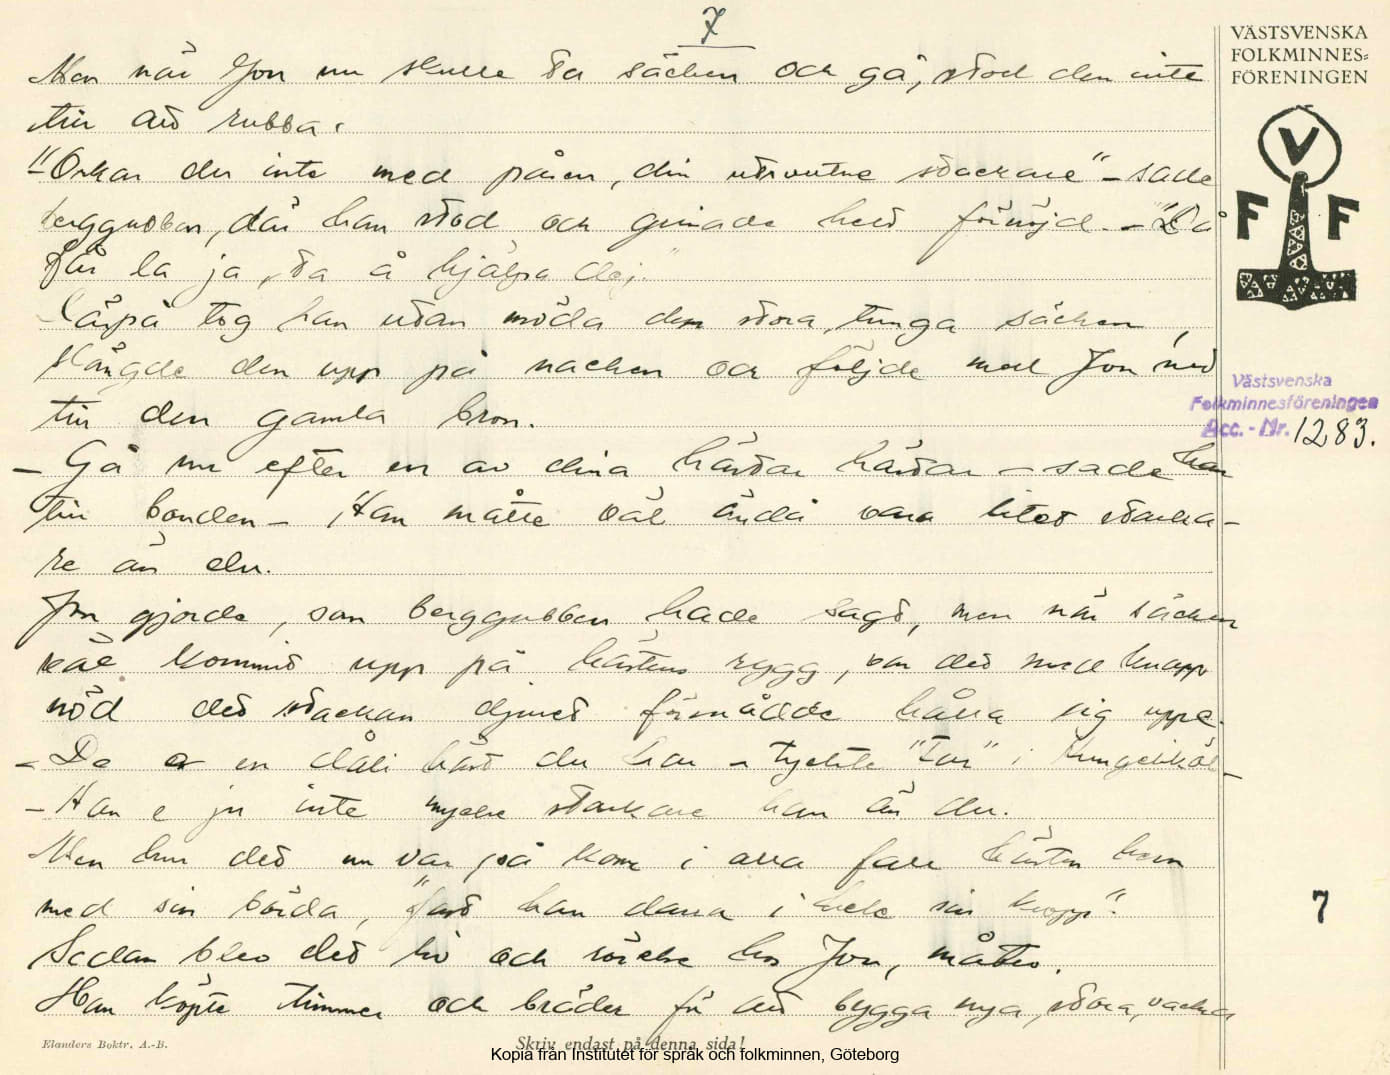 7
VÄSTSVENSKA
FOLKMINNES=
FÖRENINGEN
V
F F
Men när Jon nu skulle ta säcken och gå, stod den inte
till att rubba.
"Orkar du inte med påsen, din utsvultne stackare" – sade
berggubben, där han stod och grinade helt förnöjd. – "Då
får la ja, ta å hjälpa dej."
Därpå tog han utan möda den stora, tunga säcken,
slängde den upp på nacken och följde med Jon ned
till den gamla bron.
– Gå nu efter en av dina hästar hästar – sade han
till bonden – Han måtte väl ändå vara litet starka-
re än du.
Jon gjorde, som berggubben hade sagt, men när säcken
väl kommit upp på hästens rygg, var det med knapp
nöd det stackars djuret förmådde hålla sig uppe.
– De er en dåli häst du har – tyckte "Far" i
– Han e ju inte mycke starkare han än du.
Men hur det nu var på kom i alla fall hästen hem
med sin börda, "fast han darra i hele sin kropp".
Sedan blev det liv och rörelse hos Jon, måtro.
Han köpte timmer och bräder för att bygga nya, stora, vackra
Västsvenska
Folkminnesföreningen
Acc. - Nr. 1283.
7
Elanders Boktr. A.-B.
Skriv endast på denna sida!
Kopia från Institutet för språk och folkminnen, Göteborg